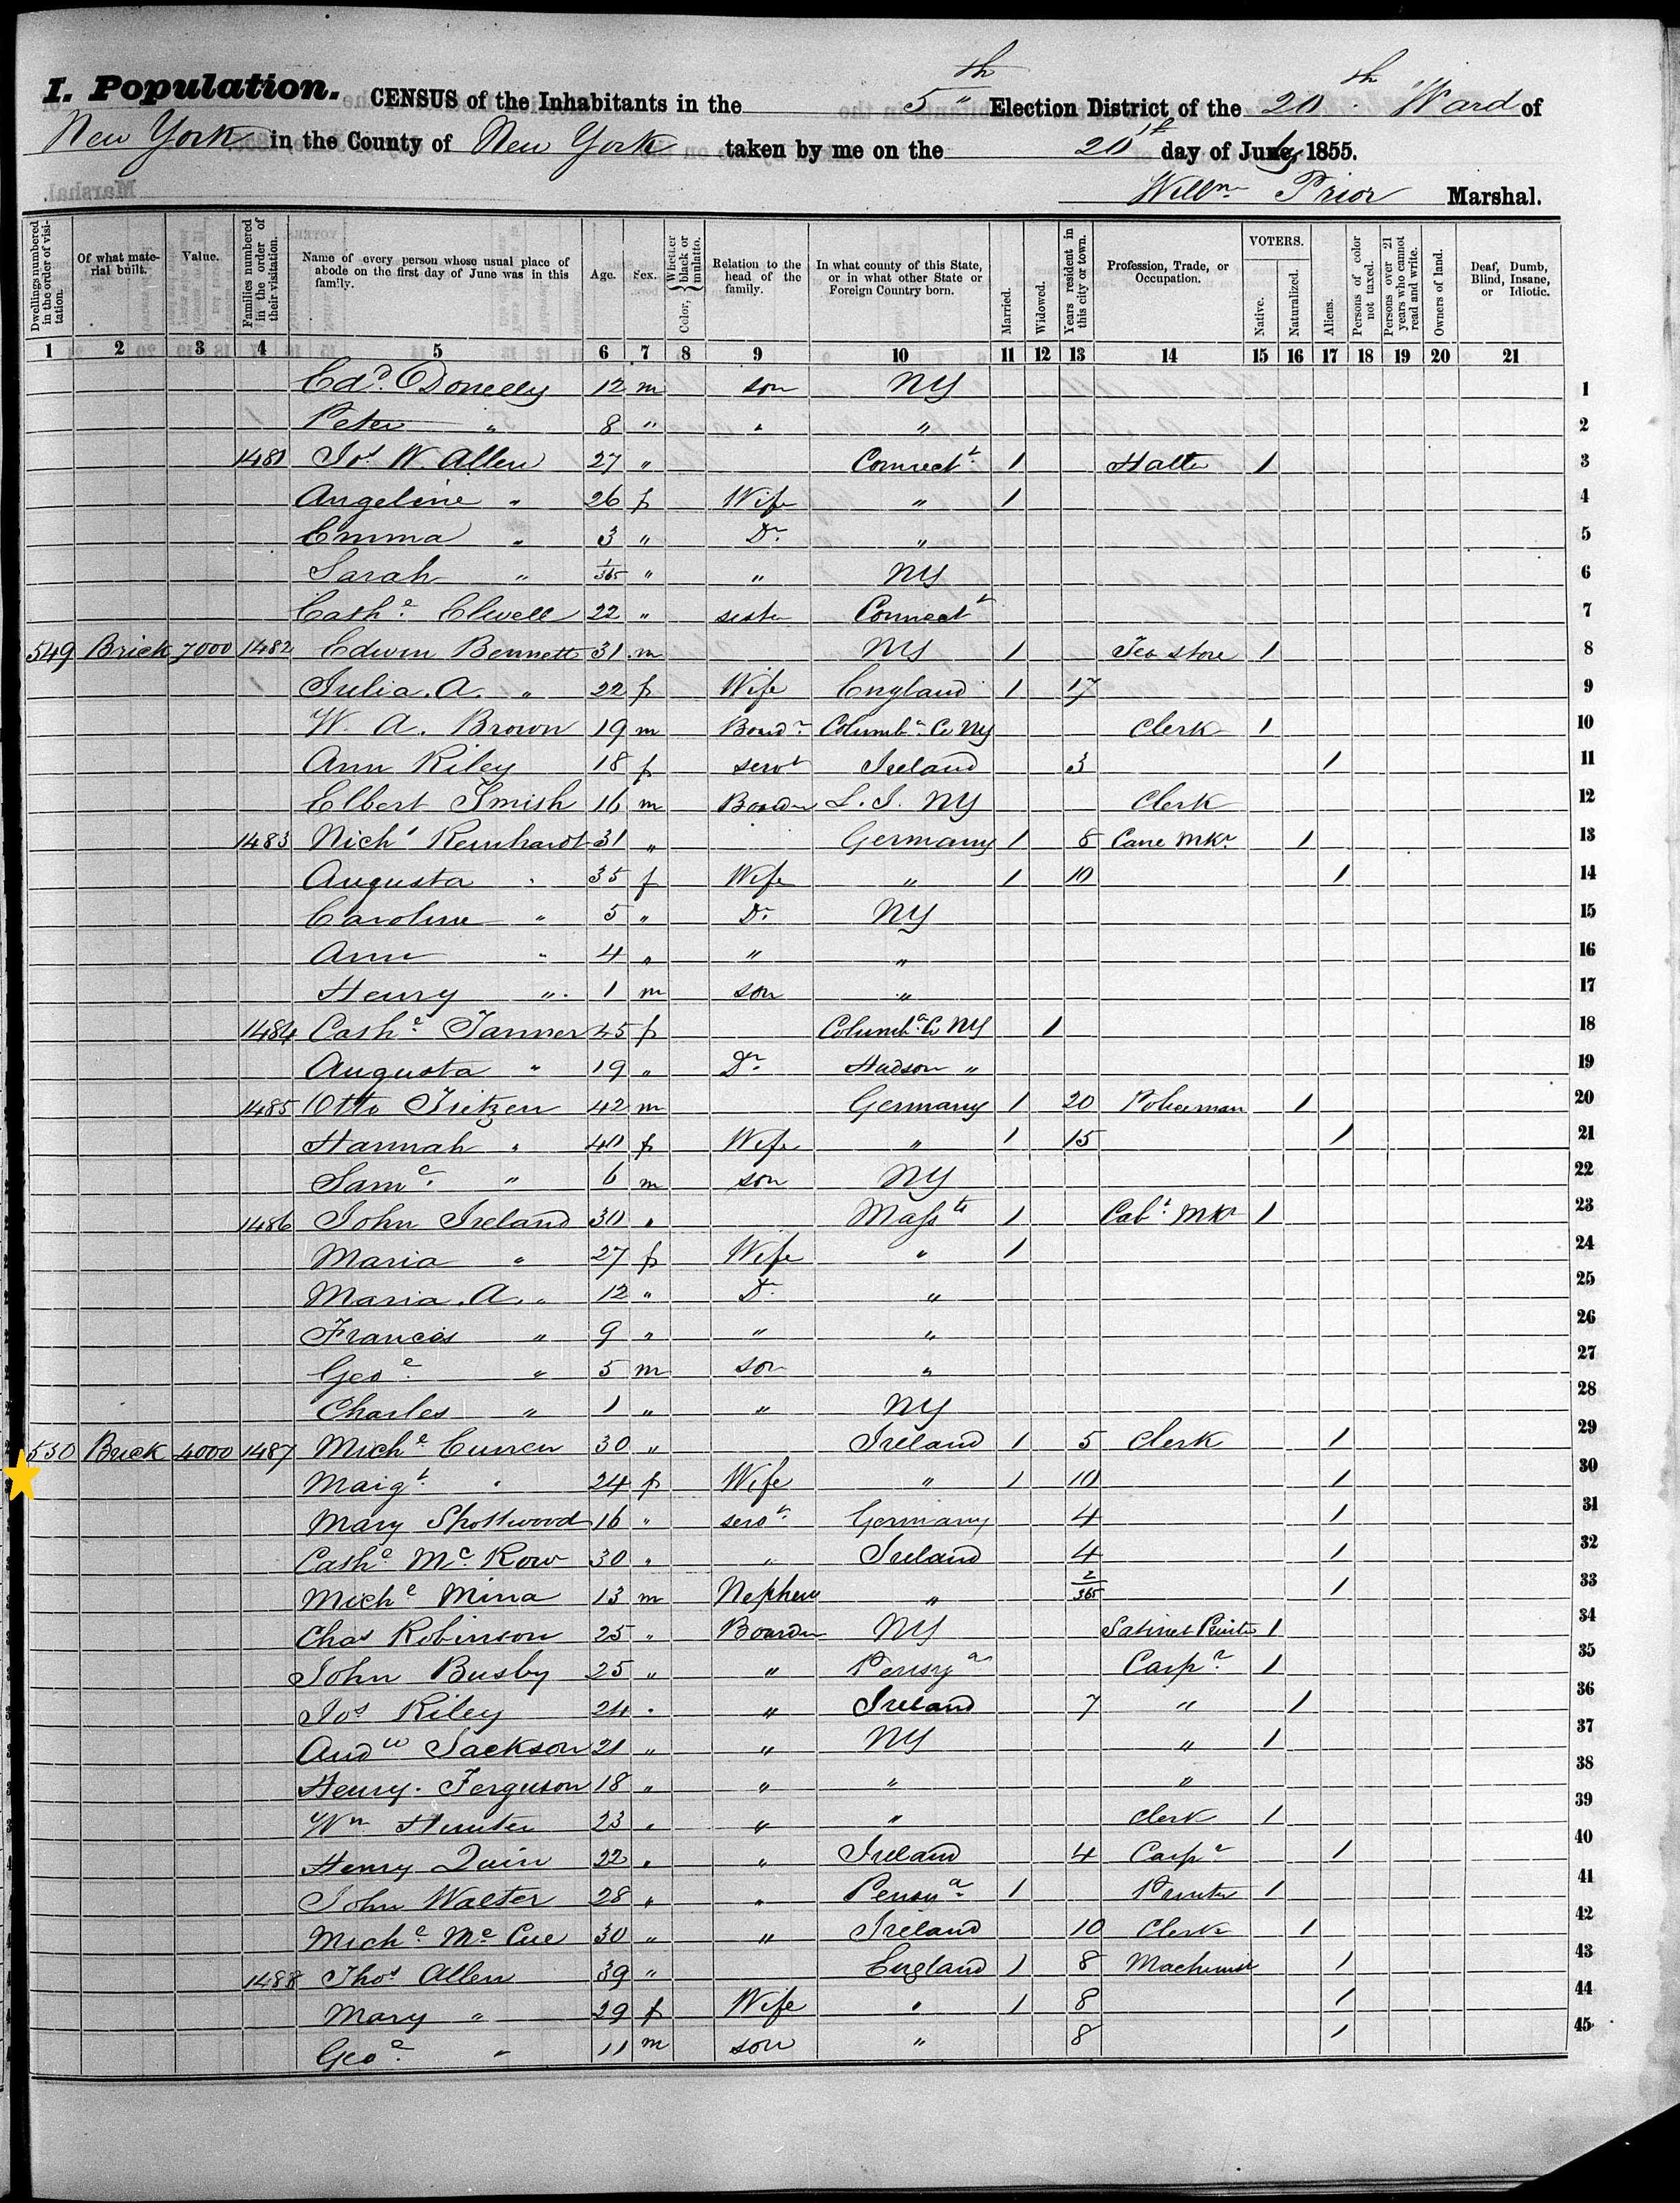 I. Population. CENSUS of the Inhabitants in the 5th Election District of the 20th Ward of
New York in the County of New York taken by me on the 20th day of July, 1855.
Willm Prior Marshal.
Dwellings numbered in the order of visitation. Of what material built. Value. Families numbered in the order of their visitation. Name of every person whose usual place of abode on the first day of June was in this family. Age. Sex. Color, Whether black or mulatto. Relation to the head of the family. In what county of this State, or in what other State or Foreign Country born. Married. Widowed. Years resident in this city or town. Profession, Trade, or Occupation. VOTERS. Native. Naturalized. Aliens. Persons of color not taxed. Persons over 21 years who cannot read and write. Owners of land. Deaf, Dumb, Blind, Insane, or Idiotic.
1 2 3 4 5 6 7 8 9 10 11 12 13 14 15 16 17 18 19 20 21
Edd. ODonelly 12 m son NY 1
Peter " 8 " " " 2
1481 Jos W. Allen 27 " Connect t 1 Hatter 1 3
Angeline " 26 f Wife " 1 4
Emma " 3 " Dr. " 5
Sarah " 1/365 " " NY 6
Cathe Elwell 22 " sister Connect t 7
549 Brick 7000 1482 Edwin Bennett 31 m NY 1 Tea store 1 8
Julia. A. " 22 f Wife England 1 17 9
W. A. Brown 19 m Boardr Columba Co NY Clerk 1 10
Ann Riley 18 f servt Ireland 3 1 11
Elbert Smith 16 m Boarder L. I. NY Clerk 12
1483 Nichs Reinhardt 31 " Germany 1 8 Cane Mkr 1 13
Augusta " 35 f Wife " 1 10 1 14
Caroline " 5 " Dr NY 15
Ann " 4 " " " 16
Henry " 1 m son " 17
1484 Cathe Tanner 45 f Columba Co NY 1 18
Augusta " 19 " Dr. Hudson " 19
1485 Otto Tietzen 42 m Germany 1 20 Policeman 1 20
Hannah " 40 f Wife " 1 15 1 21
Saml " 6 m son NY 22
1486 John Ireland 30 " Massts 1 Cabt Mkr 1 23
Maria " 27 f Wife " 1 24
Maria. A. " 12 " Dr. " 25
Francis " 9 " " " 26
Geoe " 5 m son " 27
Charles " 1 " " NY 28
530 Brick 4000 1487 Miche Curren 30 " Ireland 1 5 Clerk 1 29
Margt " 24 f Wife " 1 10 1 30
Mary Spottwood 16 " servt Germany 4 1 31
Cathe Mc Kow 30 " " Ireland 4 1 32
Miche Mina 13 m Nephew " 2/365 1 33
Chas Robinson 25 " Boarder NY Satinet Printer 1 34
John Busby 25 " " Pensya Carpr 1 35
Jos Riley 24 " " Ireland 7 " 1 36
Andw Jackson 21 " " NY " 1 37
Henry. Ferguson 18 " " " " 38
Wm Hunter 23 " " " Clerk 1 39
Henry Quin 22 " " Ireland 4 Carpr 1 40
John Walter 28 " " Pensya 1 1 41
Miche Mc Cue 30 " " Ireland 10 Clerk 1 42
1488 Thos Allen 39 " England 1 8 Machinist 1 43
Mary " 29 f Wife " 1 8 1 44
Geoe " 11 m son " 8 1 45